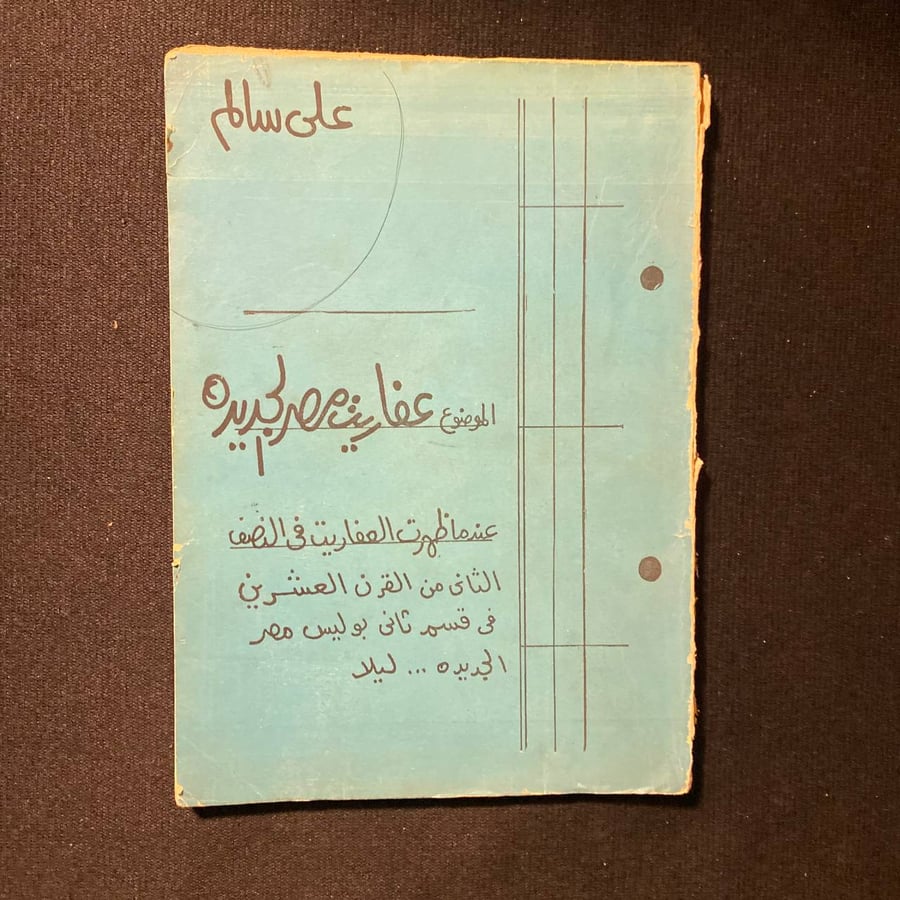 على سالم
الموضوع عفاريت مصر الجديده
عندما ظهرت العفاريت فى النصف
الثانى من القرن العشرين
فى قسم ثانى بوليس مصر
الجديده ... ليلا